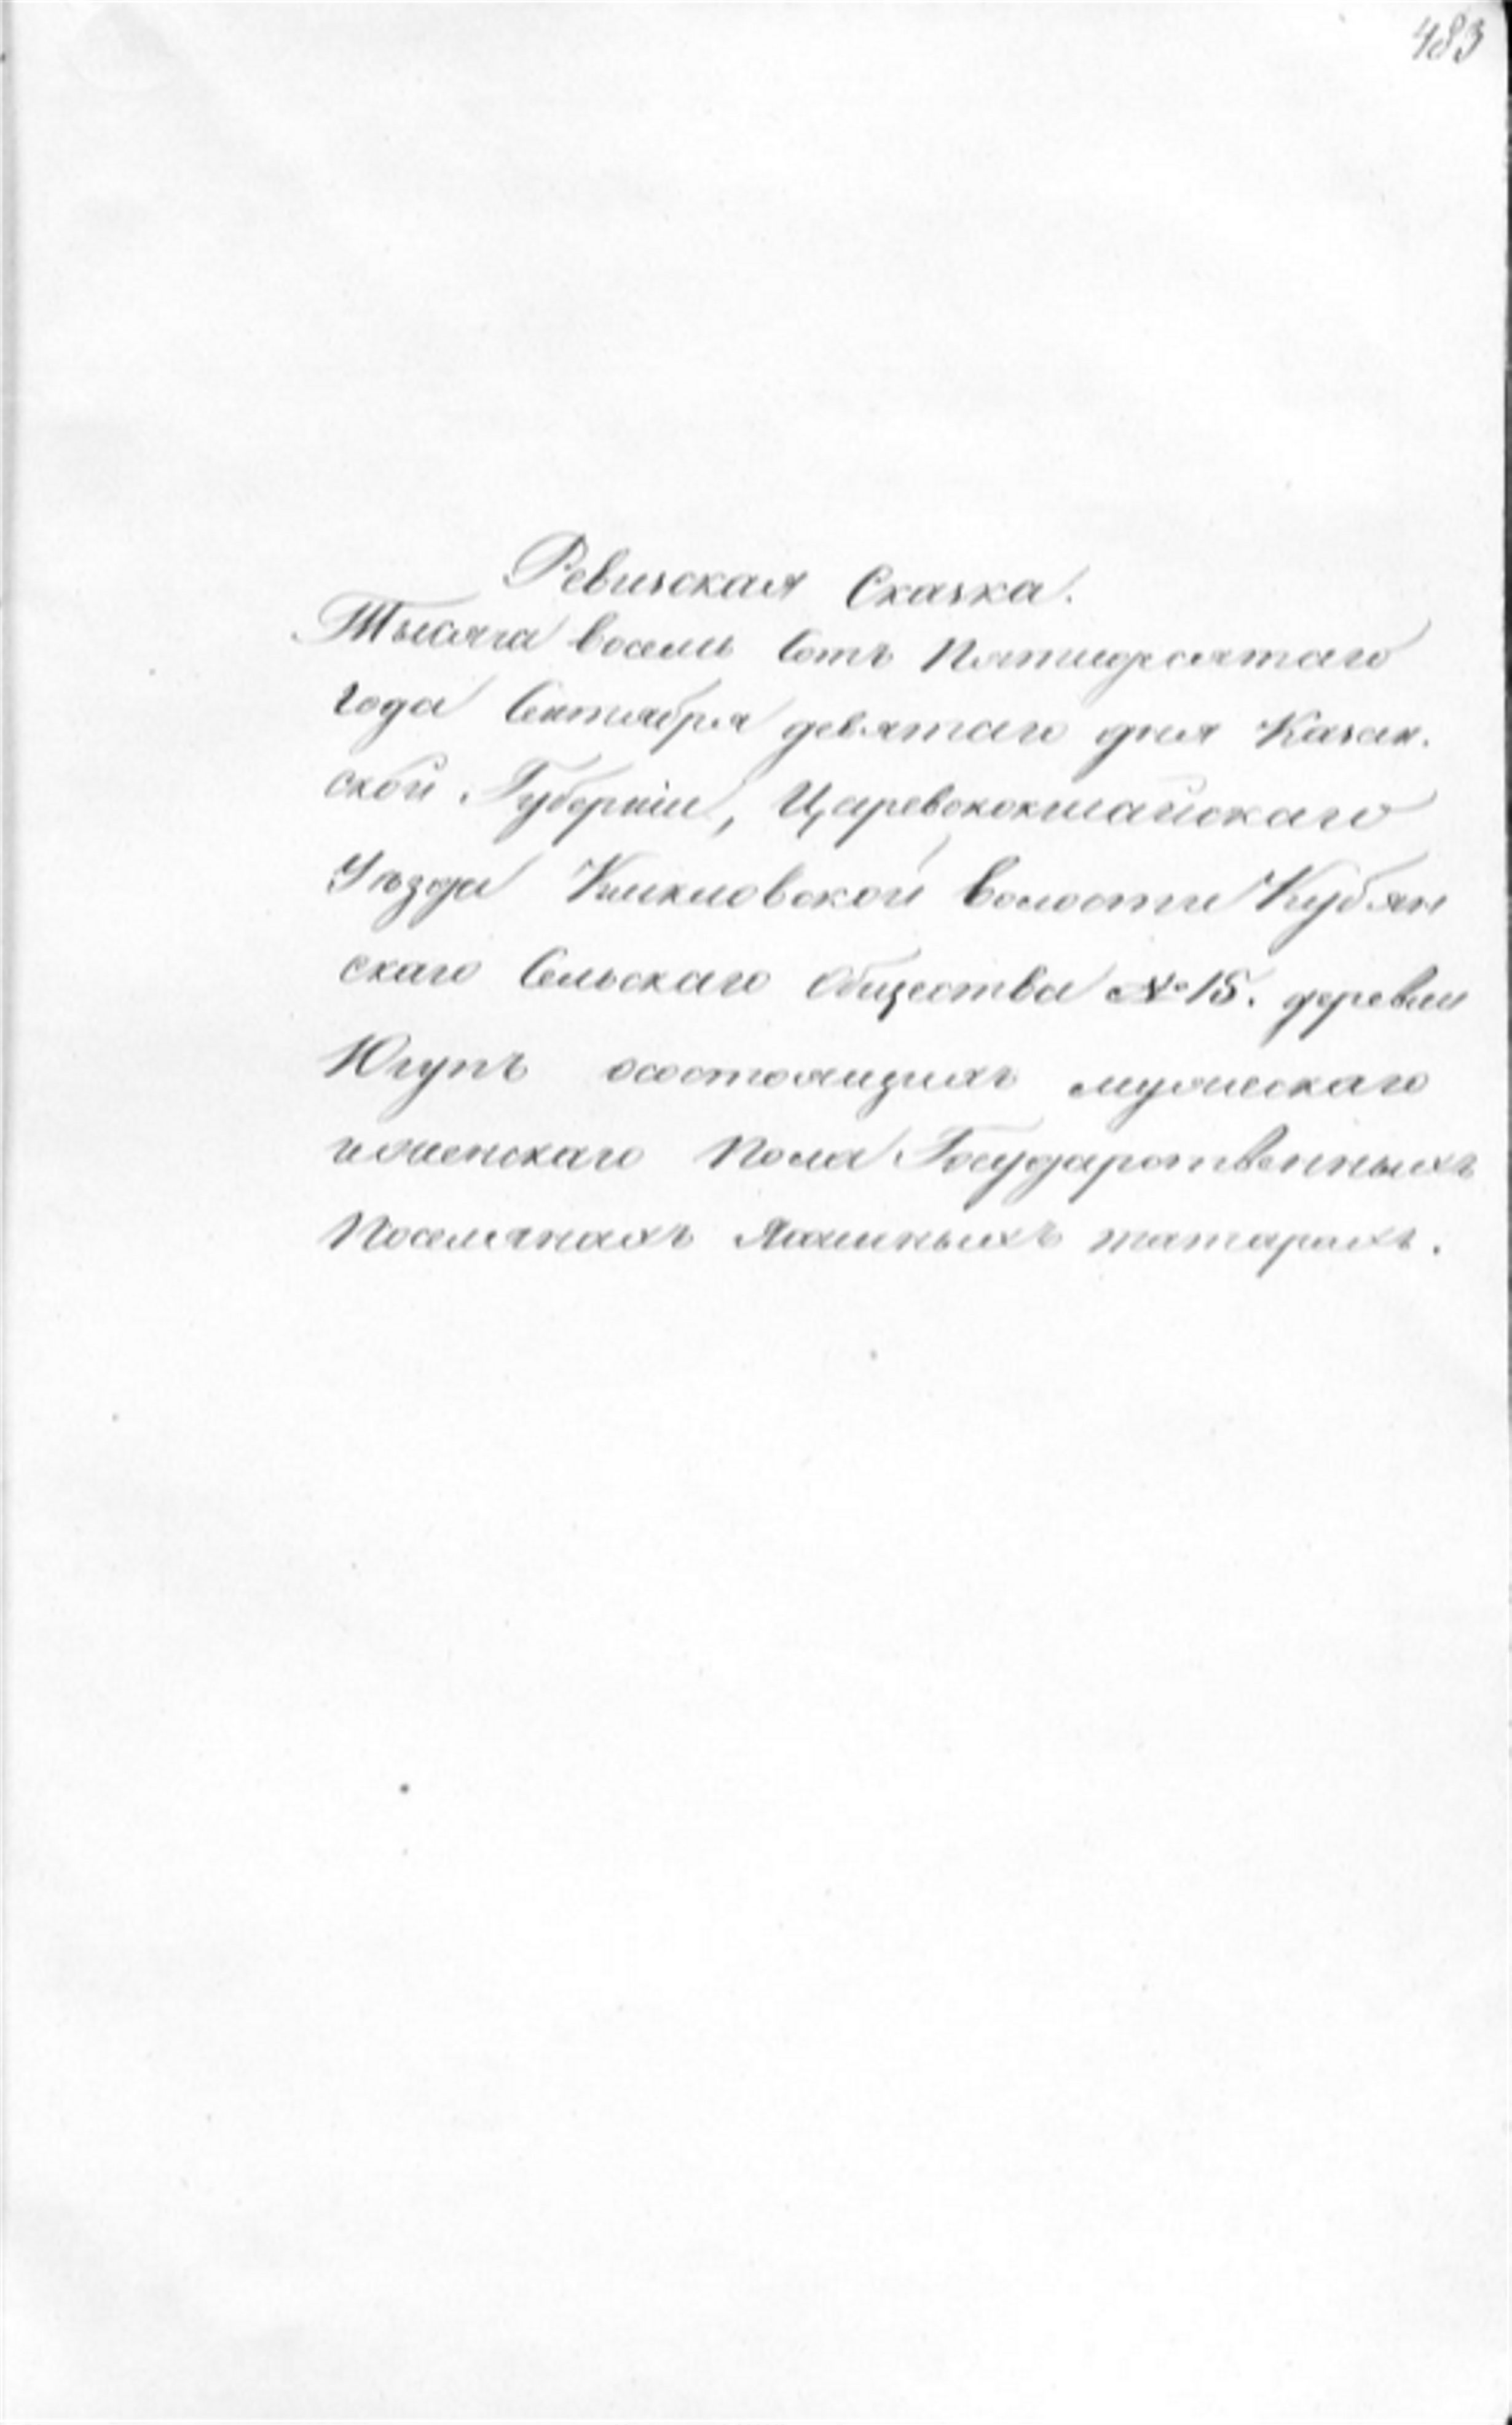 483
Ревизская Сказка.
Тысяча восемь Сотъ Пятидесятаго
года Сентября девятаго дня Казан.
ской Губерніи, Царевококшайскаго
Уѣзда Кшкловской волости Кубян
скаго Сельскаго Общества № 15. деревни
Югупъ осостоящихъ мужескаго
иженскаго Пола Государственныхъ
Поселянахъ Ясашныхъ татарахъ.